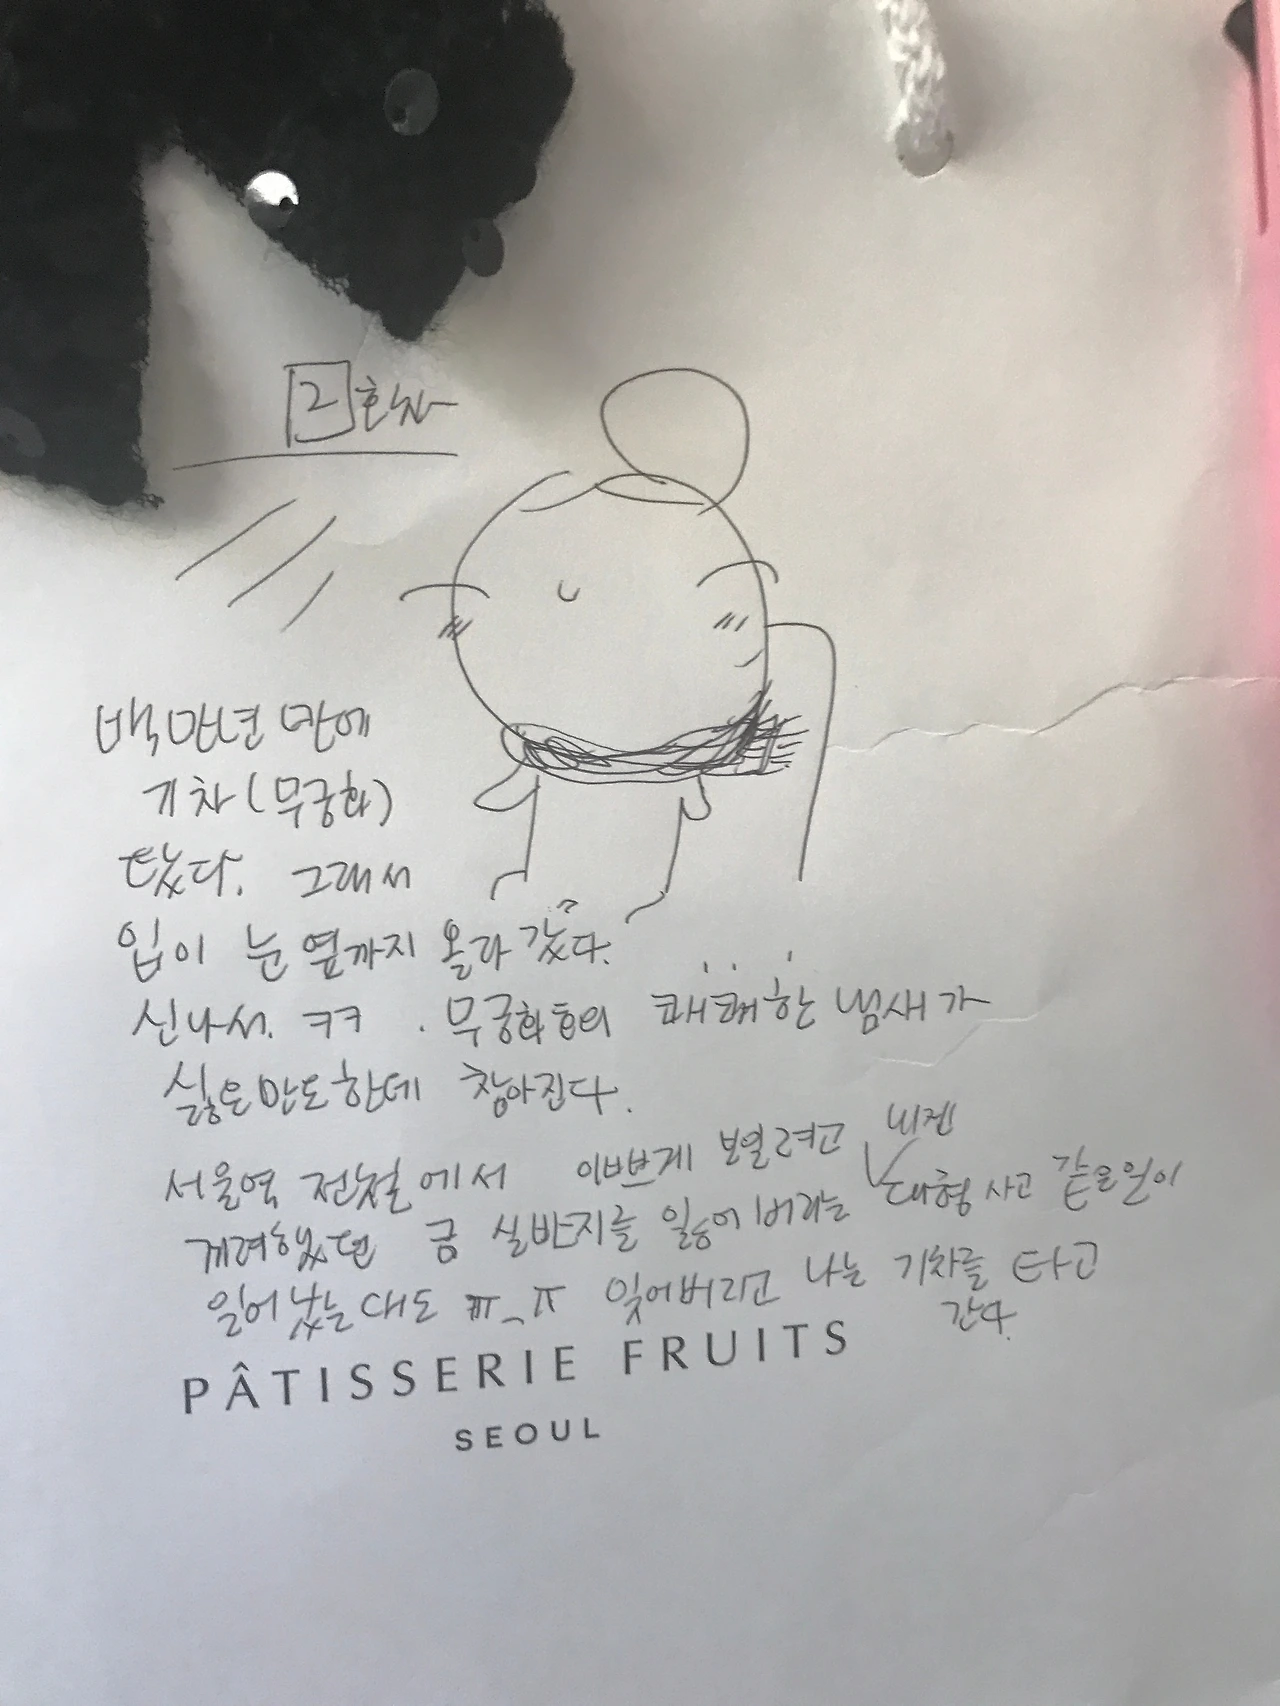 2호차
백만년 만에
기차(무궁화)
탔다. 그래서
입이 눈 옆까지 올라갔다.
신나서. ㅋㅋ . 무궁화호의 쾌쾌한 냄새가
싫을만도한데 참아진다.
서울역 전철에서 이쁘게 보일려고 내겐
계려했던 금 실반지를 잃어버리는 대형사고 같은일이
일어났는대도 ㅠ_ㅠ 잊어버리고 나는 기차를 타고
간다.
PÂTISSERIE FRUITS
SEOUL